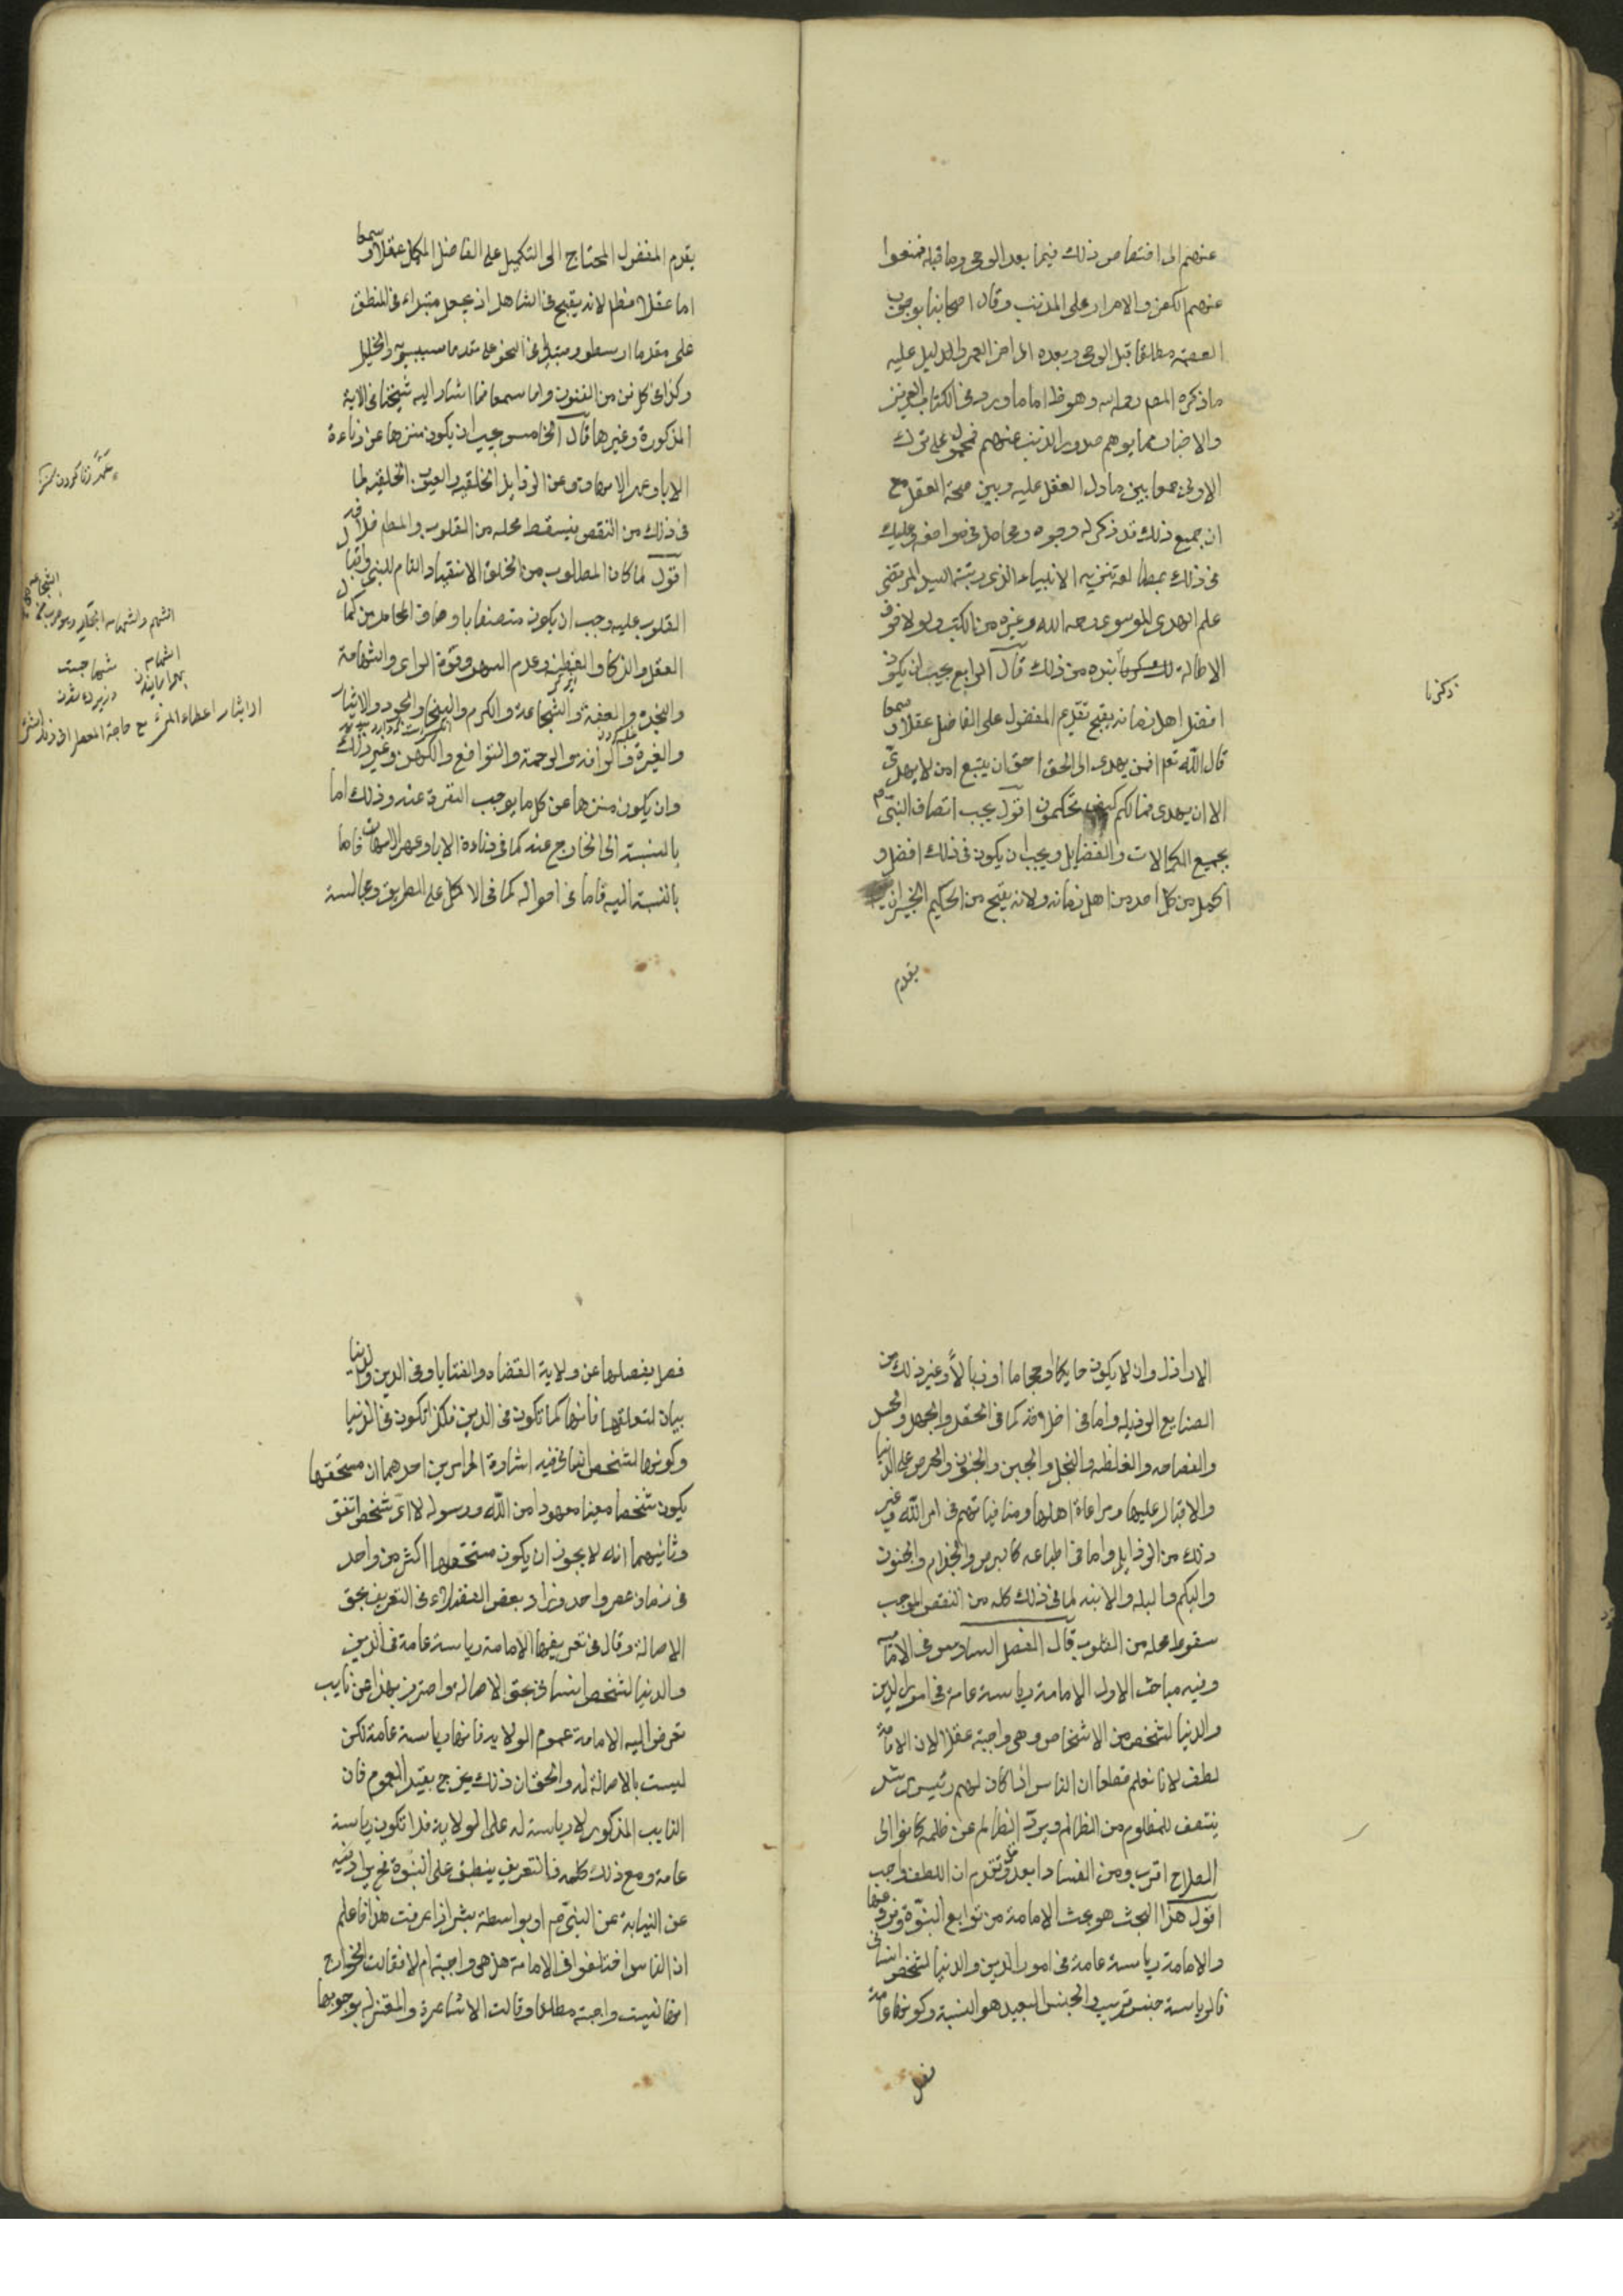 عنهم الى اختصاص ذلك فيما بعد الوحى وما قبله فمنعوا
عنهم الكفر والاصرار على الذنب وقال اصحابنا بوجوب
العصمة مطلقا قبل الوحى وبعده الى اخر العمر والدليل عليه
ما ذكره المص رحمه الله وهو ظ اما ما ورد فى الكتاب العزيز
والاخبار مما يوهم صدور الذنب عنهم فمحمول على ترك
الاولى جمعا بين ما دل العقل عليه وبين صحة النقل مع
ان جميع ذلك قد ذكر له وجوه ومحامل فى مواضعه وعليك
فى ذلك بمطالعة تنزيه الانبياء الذى رتبه السيد المرتضى
علم الهدى الموسوى رحمه الله وغيره من الكتب ولولا خوف
الاطالة لذكرنا نبذه من ذلك قال الرابع يجب ان يكون
افضل اهل زمانه لقبح تقديم المفضول على الفاضل عقلا وسمعا
قال الله تعم افمن يهدى الى الحق احق ان يتبع امن لا يهدى
الا ان يهدى فما لكم كيف تحكمون اقول يجب اتصاف النبى
بجميع الكمالات والفضايل ويجب ان يكون فى ذلك افضل و
اكمل من كل احد من اهل زمانه ولانه يقبح من الحكيم الخبير ان
يقدم
ذكرنا
يقدم المفضول المحتاج الى التكميل على الفاضل المكمل عقلا وسمعا
اما عقلا فظ لانه يقبح فى الشاهد ان يجعل مبتدء فى المنطق
على مقدما ارسطو ومبتدء فى النحو على مقدما سيبويه والخليل
وكذا فى كل فن من الفنون واما سمعا فما اشار اليه شيخنا فى الاية
المذكورة وغيرها قال الخامس يجب ان يكون منزها عن دناءة
الاباء وعهر الامهات وعن الرذايل الخلقية والعيوب الخلقية لما
فى ذلك من النقص فيسقط محله من القلوب والمط خلافه
اقول لما كان المطلوب من الخلق الانقياد التام للنبى واقبال
القلوب عليه وجب ان يكون متصفا باوصاف المحامد من كمال
العقل والذكاء والفطنه وعدم السهو وقوة الراى والشهامة
والنجدة والعفة والشجاعة والكرم والسخاء والجود والايثار
والغيرة والرافة والرحمة والتواضع واللين وغير ذلك
وان يكون منزها عن كل ما يوجب النفرة عنه وذلك اما
بالنسبة الى الخارج عنه كما فى دناءة الاباء وعهر الامهات واما
بالنسبة اليه فاما فى احواله كما فى الاكل على الطريق ومجالسة
الايثار اعطاء الشئ مع حاجة المعطى
الاراذل وان لا يكون حايكا او حجاما او زبالا او غير ذلك من
الصنايع الرذيله واما فى اخلاقه كما فى الحقد والجهل والحسد
والفظاظه والغلظه والبخل والجبن والجنون والحرص على الدنيا
والاقبال عليها ومراعاة اهلها ومنافياتهم فى امر الله وغير
ذلك من الرذايل واما فى طباعه كالبرص والجذام والجنون
والبكم والبله والابنه لما فى ذلك كله من النقص الموجب
سقوط محله من القلوب قال الفصل السادس فى الامامة
وفيه مباحث الاول الامامة رياسة عامة فى امور الدين
والدنيا لشخص من الاشخاص وهى واجبة عقلا لان الامامة
لطف لانا نعلم قطعا ان الناس اذا كان لهم رئيس مرشد
ينتصف للمظلوم من الظالم ويردع الظالم عن ظلمه كانوا الى
الصلاح اقرب ومن الفساد ابعد وقد تقدم ان اللطف واجب
اقول هذا البحث هو بحث الامامة من توابع النبوة وفروعها
والامامة رياسة عامة فى امور الدين والدنيا لشخص انسانى
فالرياسة جنس قريب والجنس البعيد هو النسبة وكونها عامة
فصل
فصل يفصلها عن ولاية القضاء والقضايا وفى الدين والدنيا
بيان لمتعلقها فانها كما تكون فى الدين فكذا تكون فى الدنيا
وكونها لشخص انسانى فيه اشارة الى امرين احدهما ان مستحقها
يكون شخصا معينا معهودا من الله ورسوله لا اى شخص اتفق
وثانيهما انه لا يجوز ان يكون مستحقها اكثر من واحد
فى زمان عصر واحد وزاد بعض الفضلاء فى التعريف بحق
الاصالة وقال فى تعريفها الامامة رياسة عامة فى الدين
والدنيا لشخص انسانى بحق الاصالة واحترز بهذا عن نايب
تفوض اليه الامامة عموم الولاية فانها رياسة عامة لكن
ليست بالاصالة له والحق ان ذلك يخرج بقيد العموم فان
النايب المذكور لا رياسة له على الولاية فلا تكون رياسة
عامة ومع ذلك كله فالتعريف ينطبق على النبوة فح يزاد فيه
عن النيابة عن النبى او بواسطة بشر اذا عرفت هذا فاعلم
ان الناس اختلفوا فى الامامة هل هى واجبة ام لا فقالت الخوارج
انها ليست واجبة مطلقا وقالت الاشاعرة والمعتزلة بوجوبها